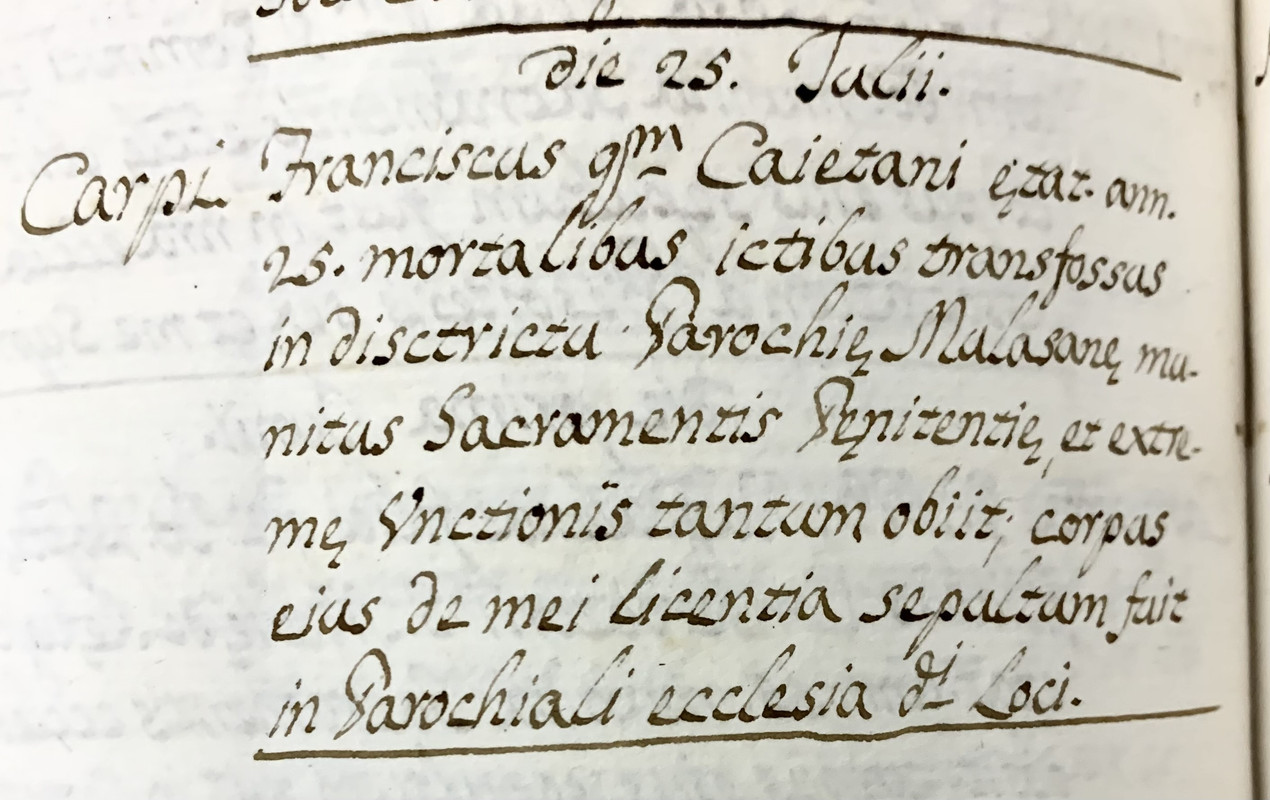 Die 25. Julii.
Carpi. Franciscus qm Caietani ętat. ann.
25. mortalibus ictibus transfossus
in disctrictu Parochię Mulasanę mu-
nitus Sacramentis Pęnitentię, et extre-
mę Vnctionis tantum obiit; corpus
eius de mei licentia sepultum fuit
in Parochiali ecclesia di Loci.